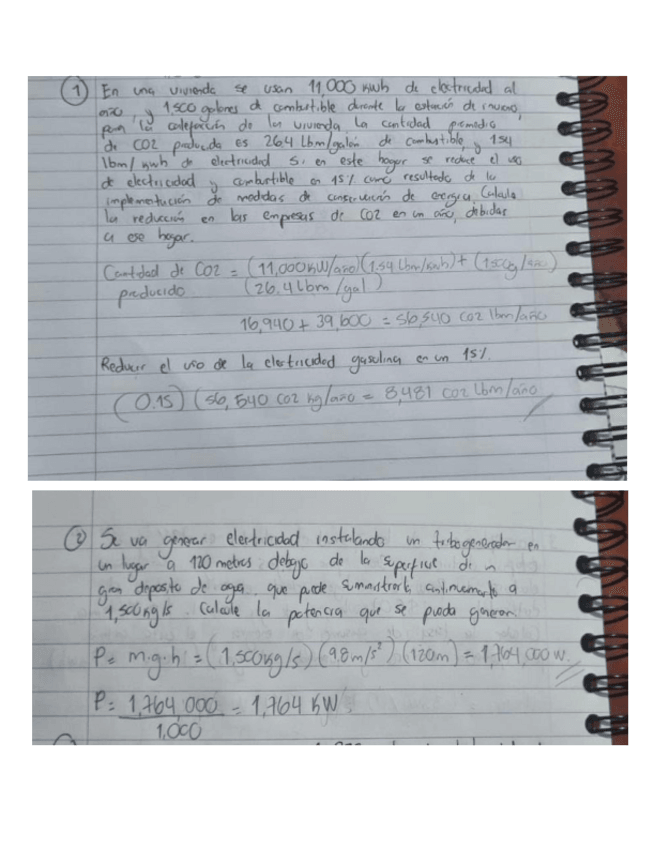 ① En una vivienda se usan 11,000 kwh de electricidad al
año, y 1500 galones de combustible durante la estación de invierno,
para la calefacción de la vivienda. La cantidad promedio
de CO2 producida es 26.4 Lbm/galón de combustible, y 1.54
lbm/kwh de electricidad Si en este hogar se reduce el uso
de electricidad y combustible en 15% como resultado de la
implementación de medidas de conservación de energía, Calcule
la reducción en las empresas de CO2 en un año, debidas
a ese hogar.
Cantidad de CO2 = (11,000kW/año)(1.54 Lbm/kwh) + (1500g/año)
producido (26.4 Lbm/gal)
16,940 + 39,600 = 56,540 CO2 lbm/año
Reducir el uso de la electricidad gasolina en un 15%
(0.15)(56,540 CO2 kg/año = 8,481 CO2 Lbm/año
② Se va generar electricidad instalando un turbogenerador en
un lugar a 120 metros debajo de la superficie de n
gran deposito de agua que puede continuamente a
1,500kg/s. Calcule la potencia que se pueda generar
P= m.g.h = (1,500kg/s)(9.8m/s²)(120m) = 1,764,000w.
P= 1,764,000 = 1,764 KW.
1,000